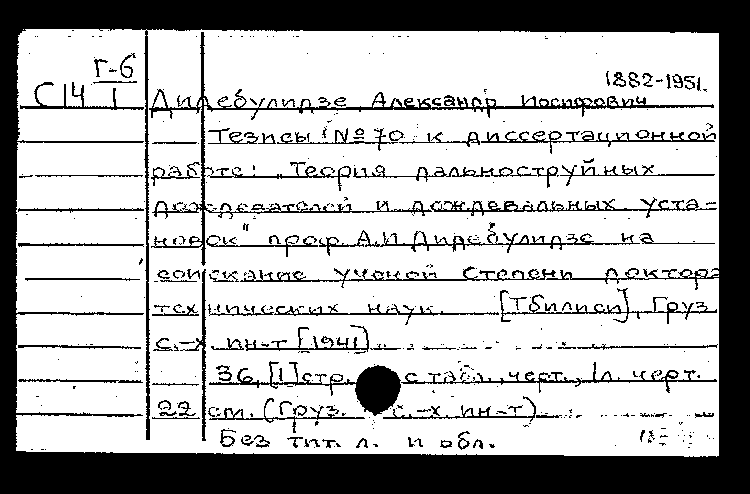 Г-6
1882-1951.
С14 1 Дидебулидзе, Александр Иосифович
Тезисы №70 к диссертационной
работе: "Теория дальноструйных
дождевателей и дождевальных уста-
новок" проф. А.И. Дидебулидзе на
соискание ученой степени доктора
технических наук. [Тбилиси], Груз.
с.-х. ин-т [1941].
36, [1] стр. с табл., черт., 1 л. черт.
22 см. (Груз. с.-х. ин-т).
Без тит. л. и обл.